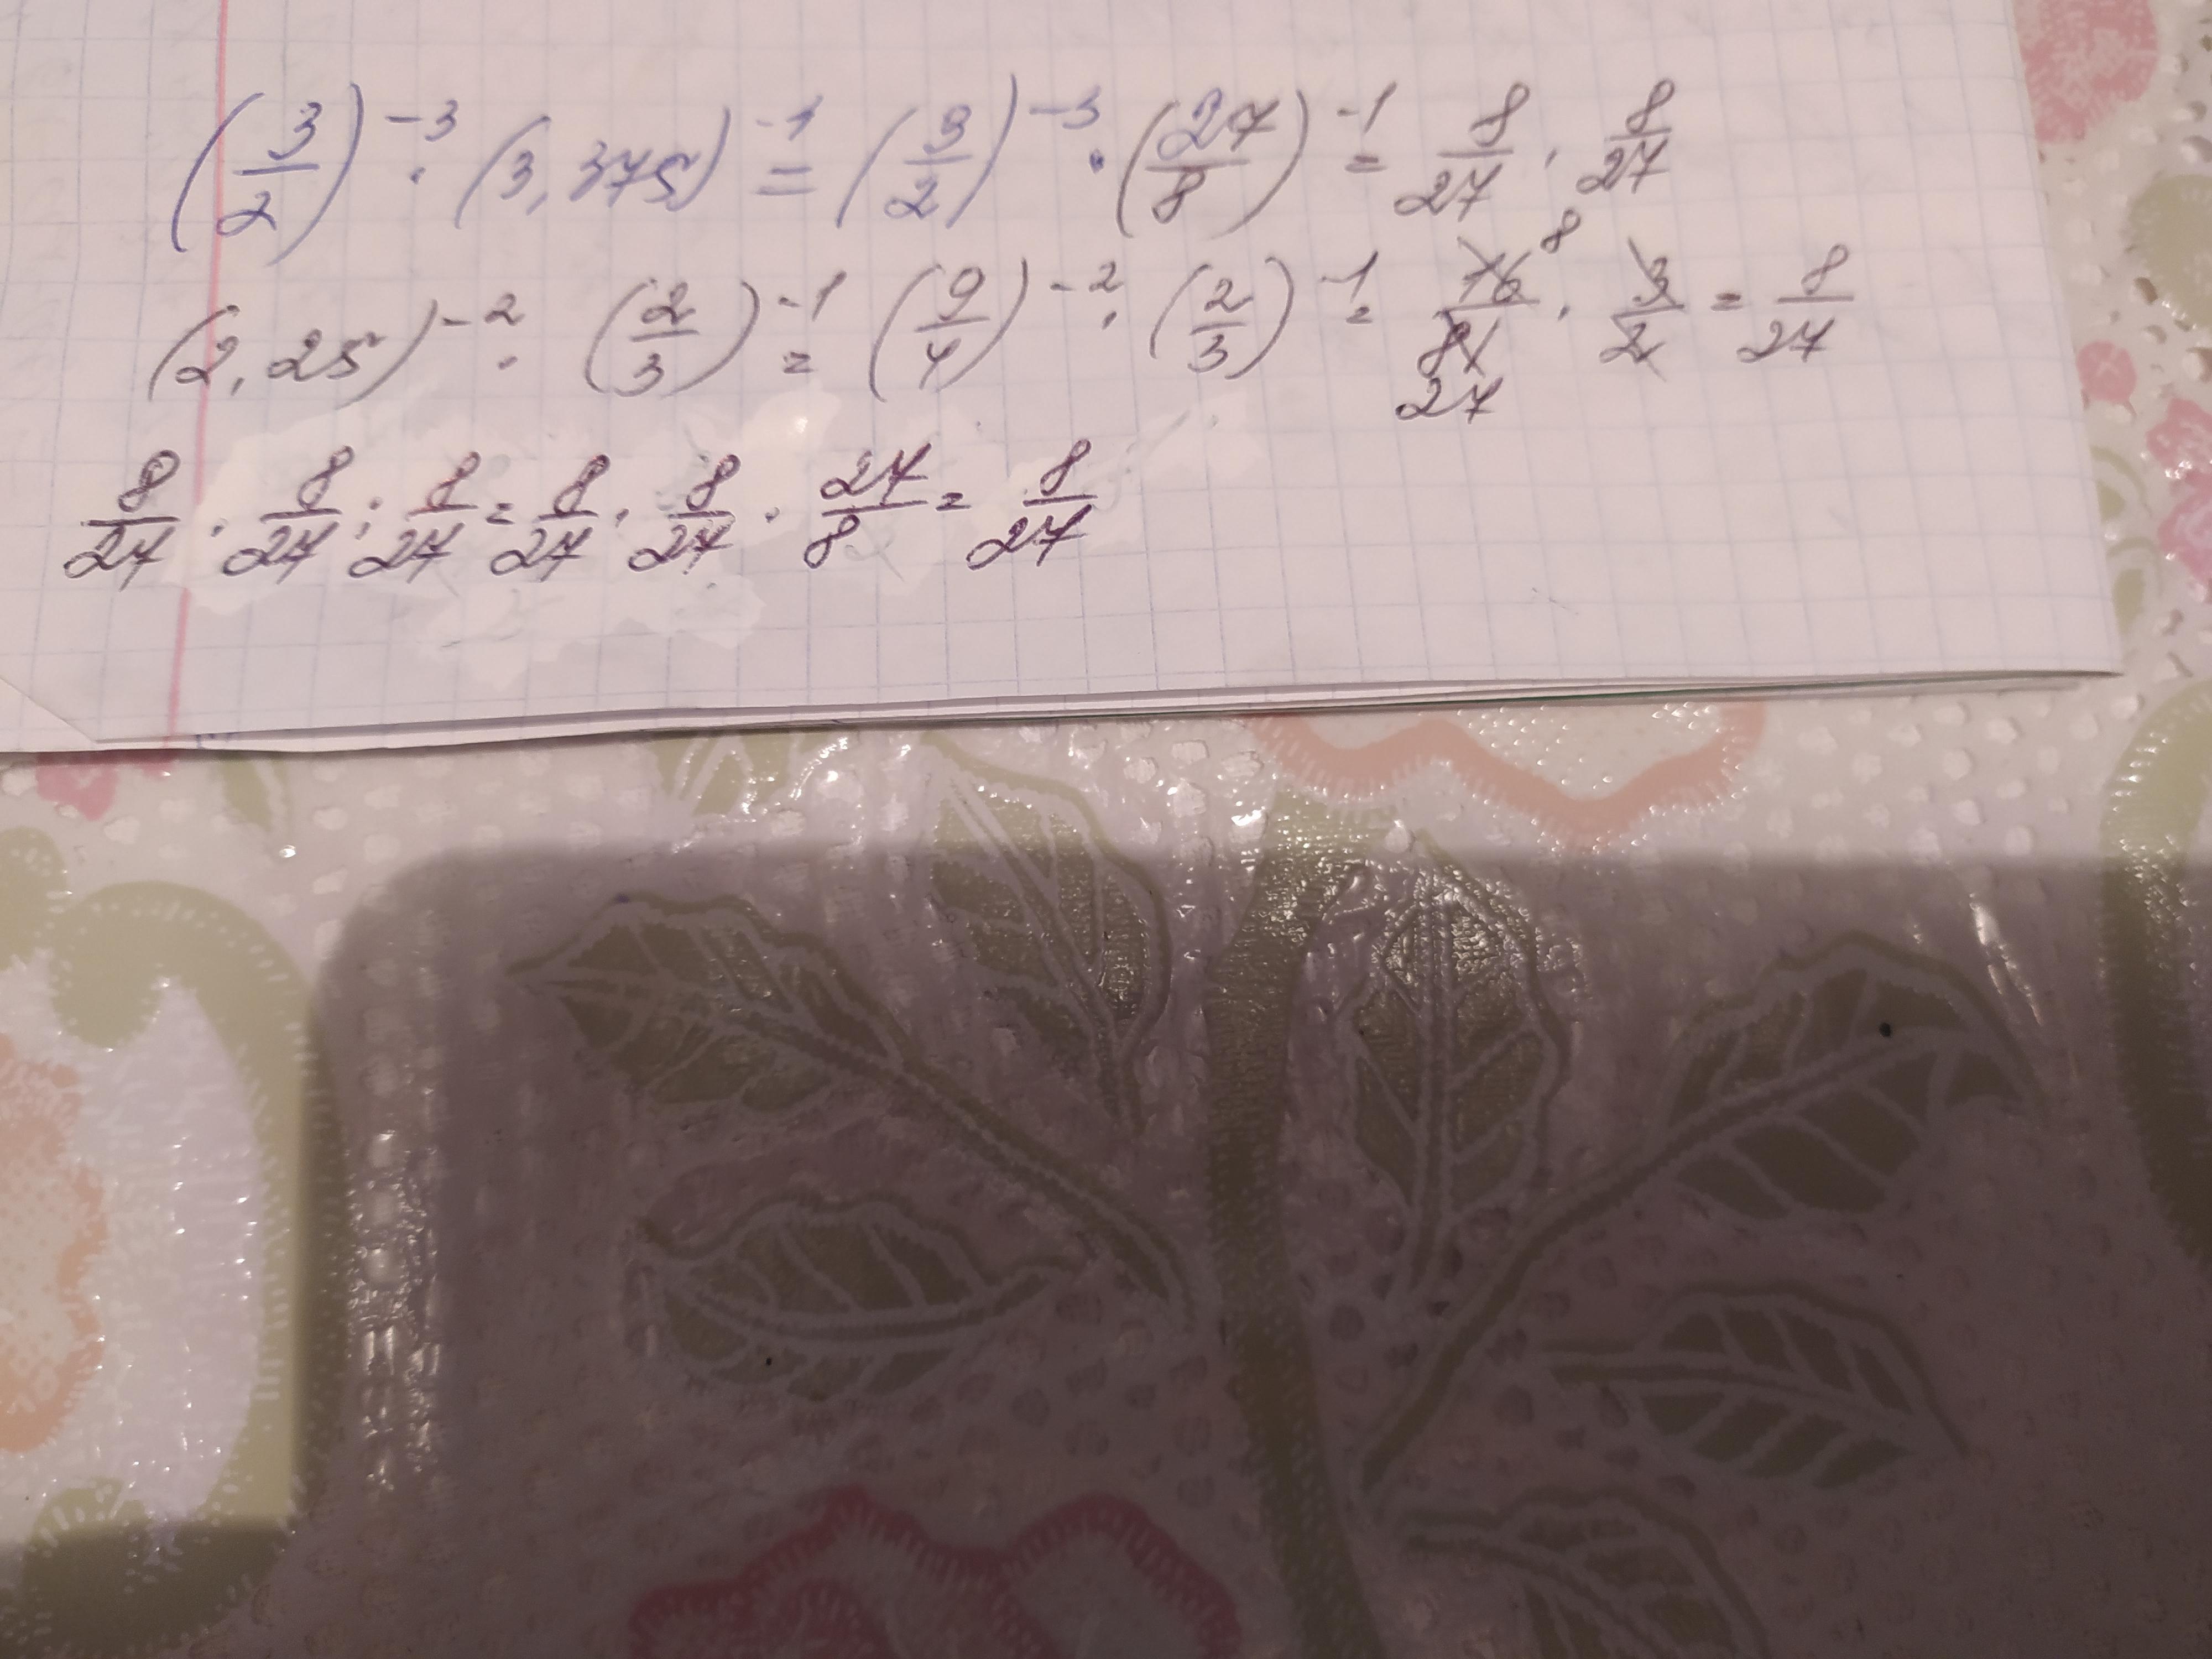 (3/2)^-3 · (3,375)^-1 = (3/2)^-3 · (27/8)^-1 = 8/27 · 8/27
(2,25)^-2 · (2/3)^-1 = (9/4)^-2 · (2/3)^-1 = 16/81 · 3/2 = 8/27
8 27
8/27 · 8/27 : 8/27 = 8/27 · 8/27 · 27/8 = 8/27